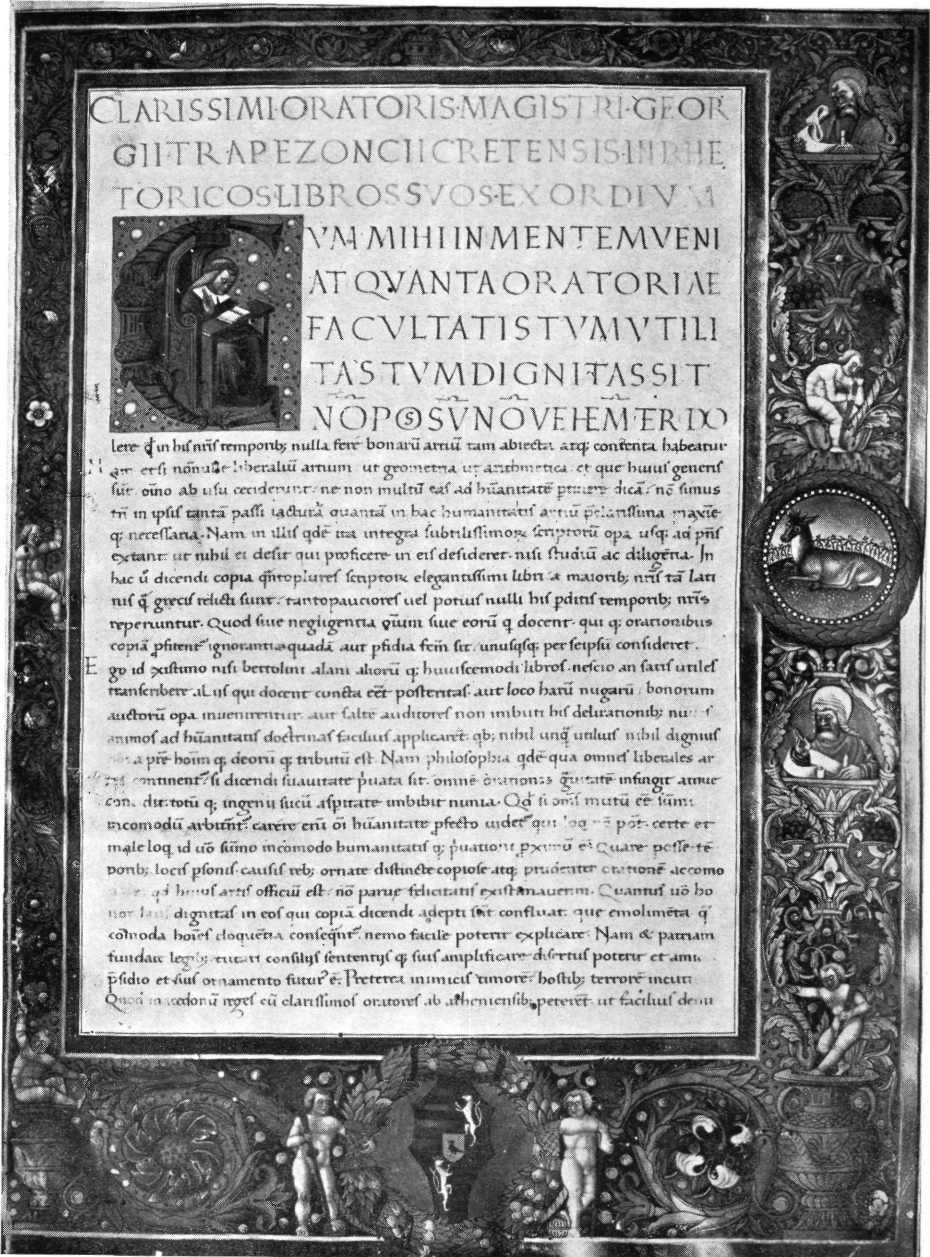 CLARISSIMI·ORATORIS·MAGISTRI·GEOR
GII TRAPEZONCII CRETENSIS·IN RHE
TORICOS·LIBROS SVOS·EXORDIVM
CVM·MIHI IN MENTEM VENI
AT QVANTA ORATORIAE
FACVLTATIS TVM VTILI
TAS TVM DIGNITAS SIT
NŌ PO S VEHEM̄TER DO
lere ꝙ in his nr̃is temporibꝫ nulla fere bonarū artiū tam abiecta atqꝫ contenta habeatur
etsi liberaliū artium ut geometria ut arithmetica et que huius generis
sūt oīno ab usu ceciderunt ne non multū eas ad hūanitatē dicā nō simus
tn̄ in ipsis tantā passi iacturā quantā in hac humanitatis artiū maxīe
qꝫ necessaria. Nam in illis qdē ita integra subtilissimoꝝ scriptorū opa usqꝫ ad pn̄s
extant ut nihil ei desit qui proficere in eis desideret nisi studiū ac diligētia. In
hac ū dicendi copia q̄nto plures scriptoꝝ elegantissimi libri a maioribꝫ nr̄is tā lati
nis q̄ grecis relicti sunt tanto pauciores uel potius nulli his pditis temporibꝫ nr̄is
reperiuntur. Quod siue negligentia siue eorū q docent qui qꝫ orationibus
copiā ꝓfitent᷑ ignorantia quadā aut pfidia sit unusqsqꝫ per seipsū consideret.
Ego id existimo nisi bettolini alani aliorū qꝫ huiuscemodi libros nescio an satis utiles
transcribere aliis qui docent cuncta eēt posteritas aut loco harū nugarū bonorum
auctorū opa inuenirentur aut saltē auditores non imbuti his delirationibꝫ
animos ad hūanitatis doctrinas facilius applicarēt qbꝫ nihil unq̄ utilius nihil dignius
a prē hoīm qꝫ deorū qꝫ tributū est. Nam philosophia qdē qua omnes liberales ar
continent᷑ si dicendi suauitate ꝓuata sit omnē infingit atque
totū qꝫ ingenii sucū aspitate imbibit nimia. Qd̄ si oīs mutū eē sūmi
incomodū arbitr̄nt᷑ carēre enī oī hūanitate ꝓfecto uidet᷑ qui pōt certe et
male loqꝫ id uō sūmo incōmodo humanitatis qꝫ Quare posse tē
poribꝫ locis psonis causis rebꝫ ornate distincte copiose atqꝫ prudenter accomo
qd huius artis officiū est nō parue felicitatis existimauerim. Quantus uō ho
dignitas in eos qui copiā dicendi adepti sūt confluat que emolimēta q̄
cōmoda hoīes eloquētia conseqn̄t᷑ nemo facile poterit explicare. Nam & patriam
fundare legibꝫ consiliis sententiis qꝫ suis amplificare disertus poterit et
psidio et suis ornamento futur᷑ ē. Preterea inimicis timorē hostibꝫ terrorē
Quod macedonū reges cū clarissimos oratores ab atheniensibꝫ peterēt ut facilius